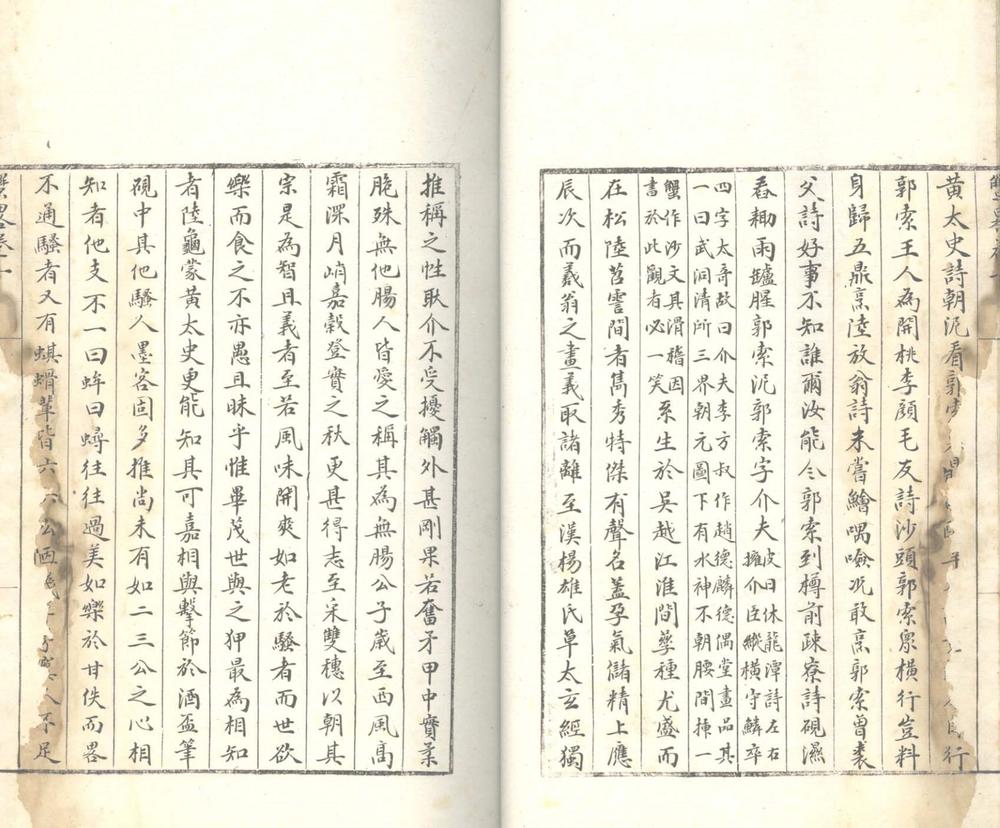 黃太史詩朝泥看郭索
郭索王人為開桃李顔毛友詩沙頭郭索衆橫行豈料
身歸五鼎烹陸放翁詩未嘗鱠喁噞況敢烹郭索曾裘
父詩好事不知誰爾汝能令郭索到樽前疎寮詩硯濕
春耡雨罏腥郭索泥郭索字介夫皮日休龍潭詩左右
擁介臣縱橫守鱗卒
四字太奇故曰介夫李方叔作趙德麟德偶堂畫品其
一曰武洞清所三界朝元圖下有水神不朝腰間揷一
蟹作沙文具滑稽因
書於此觀者必一笑系生於吳越江淮間孳種尤盛而
在松陸苕霅間者雋秀特傑有聲名盖孕氣儲精上應
辰次而羲翁之畫義取諸離至漢楊雄氏草太玄經獨
推稱之性耿介不受擾觸外甚剛果若奮矛甲中實柔
脆殊無他腸人皆愛之稱其為無腸公子歲至西風高
霜深月峭嘉穀登實之秋更甚得志至采雙穗以朝其
宗是為智且義者至若風味開爽如老於騷者而世欲
樂而食之不亦愚且昧乎惟畢茂世與之狎最為相知
者陸龜蒙黃太史更能知其可嘉相與擊節於酒盃筆
硯中其他騷人墨客固多推尚未有如二三公之心相
知者他支不一曰蛑曰蟳往往過美如樂於甘佚而畧
不通騷者又有蜞螖輩皆六
人不足